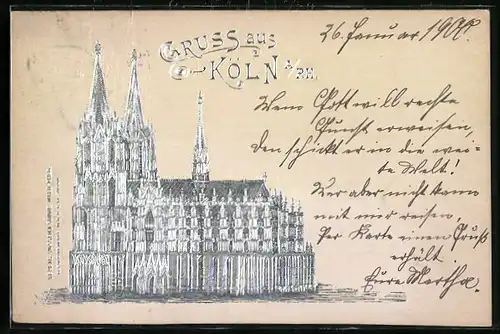 GRUSS aus
KÖLN a/RH.
26. Januar 1900.
Wem Gott will rechte
Gunst erweisen,
den schickt er in die wei-
te Welt!
Wer aber nicht kann
mit mir reisen,
Per Karte einen Gruß
erhält.
Eure Martha.